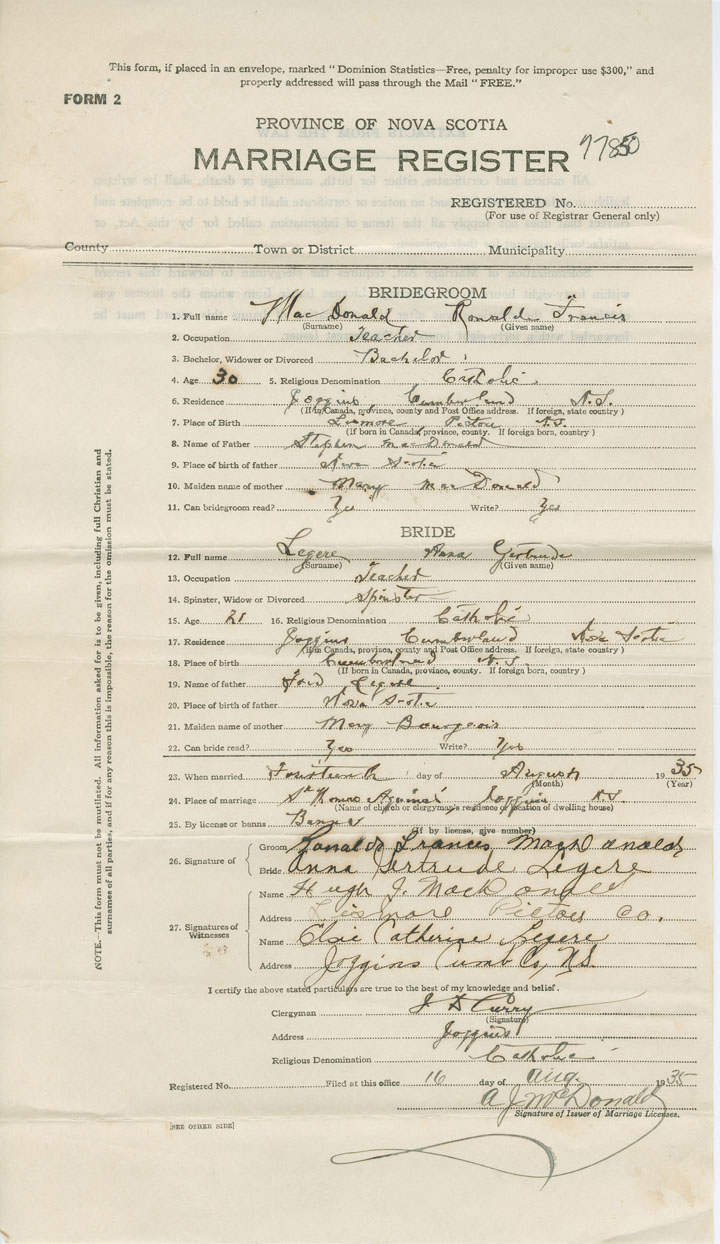 This form, if placed in an envelope, marked " Dominion Statistics—Free, penalty for improper use $300," and
properly addressed will pass through the Mail " FREE."
FORM 2
PROVINCE OF NOVA SCOTIA
MARRIAGE REGISTER
REGISTERED No.
(For use of Registrar General only)
County Town or District Municipality
BRIDEGROOM
1. Full name MacDonald Ronald Francis
(Surname) (Given name)
2. Occupation Teacher
3. Bachelor, Widower or Divorced Bachelor
4. Age 30 5. Religious Denomination Catholic
6. Residence Joggins Cumberland N.S.
(If in Canada, province, county and Post Office address. If foreign, state country )
7. Place of Birth Lismore Pictou N.S.
(If born in Canada, province, county. If foreign born, country )
8. Name of Father Stephen MacDonald
9. Place of birth of father Nova Scotia
10. Maiden name of mother Mary MacDonald
11. Can bridegroom read? Yes Write? Yes
BRIDE
12. Full name Legere Anna Gertrude
(Surname) (Given name)
13. Occupation Teacher
14. Spinster, Widow or Divorced Spinster
15. Age 16. Religious Denomination Catholic
17. Residence Joggins Cumberland Nova Scotia
(If in Canada, province, county and Post Office address. If foreign, state country )
18. Place of birth Cumberland N.S.
(If born in Canada, province, county. If foreign born, country )
19. Name of father Legere
20. Place of birth of father Nova Scotia
21. Maiden name of mother Mary Bourgeois
22. Can bride read? Yes Write? Yes
23. When married Fourteenth day of August 1935
(Month) (Year)
24. Place of marriage St Thomas Joggins N.S.
(Name of church or clergyman's residence or location of dwelling house)
25. By license or banns Banns
(If by license, give number)
26. Signature of
Groom Ronald Francis MacDonald
Bride Anna Gertrude Legere
27. Signatures of Witnesses
Name Hugh J. MacDonald
Address Lismore Pictou Co.
Name Elsie Catherine Legere
Address Joggins Cumb Co, N.S.
I certify the above stated particulars are true to the best of my knowledge and belief.
Clergyman J D Curry
(Signature)
Address Joggins
Religious Denomination Catholic
Registered No. Filed at this office 16 day of Aug. 1935
A J McDonald
Signature of Issuer of Marriage Licenses.
[SEE OTHER SIDE]
NOTE.—This form must not be mutilated. All information asked for is to be given, including full Christian and
surnames of all parties, and if for any reason this is impossible, the reason for the omission must be stated.